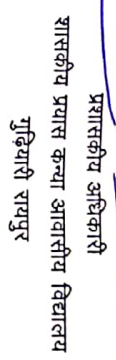 प्रशासकीय अधिकारी
शासकीय प्रयास कन्या आवासीय विद्यालय
गुढ़ियारी रायपुर